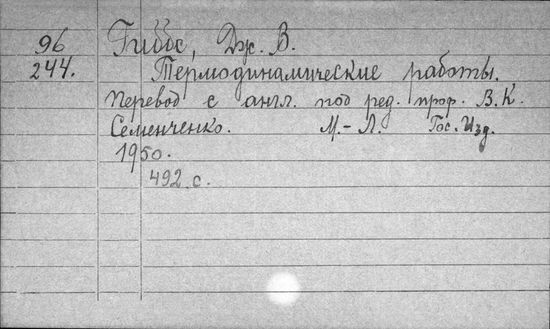 96 Гиббс, Дж. В.
244. Термодинамические работы.
Перевод с англ. под ред. проф. В. К.
Семенченко. М.-Л. Гос. Изд.
1950.
492 с.